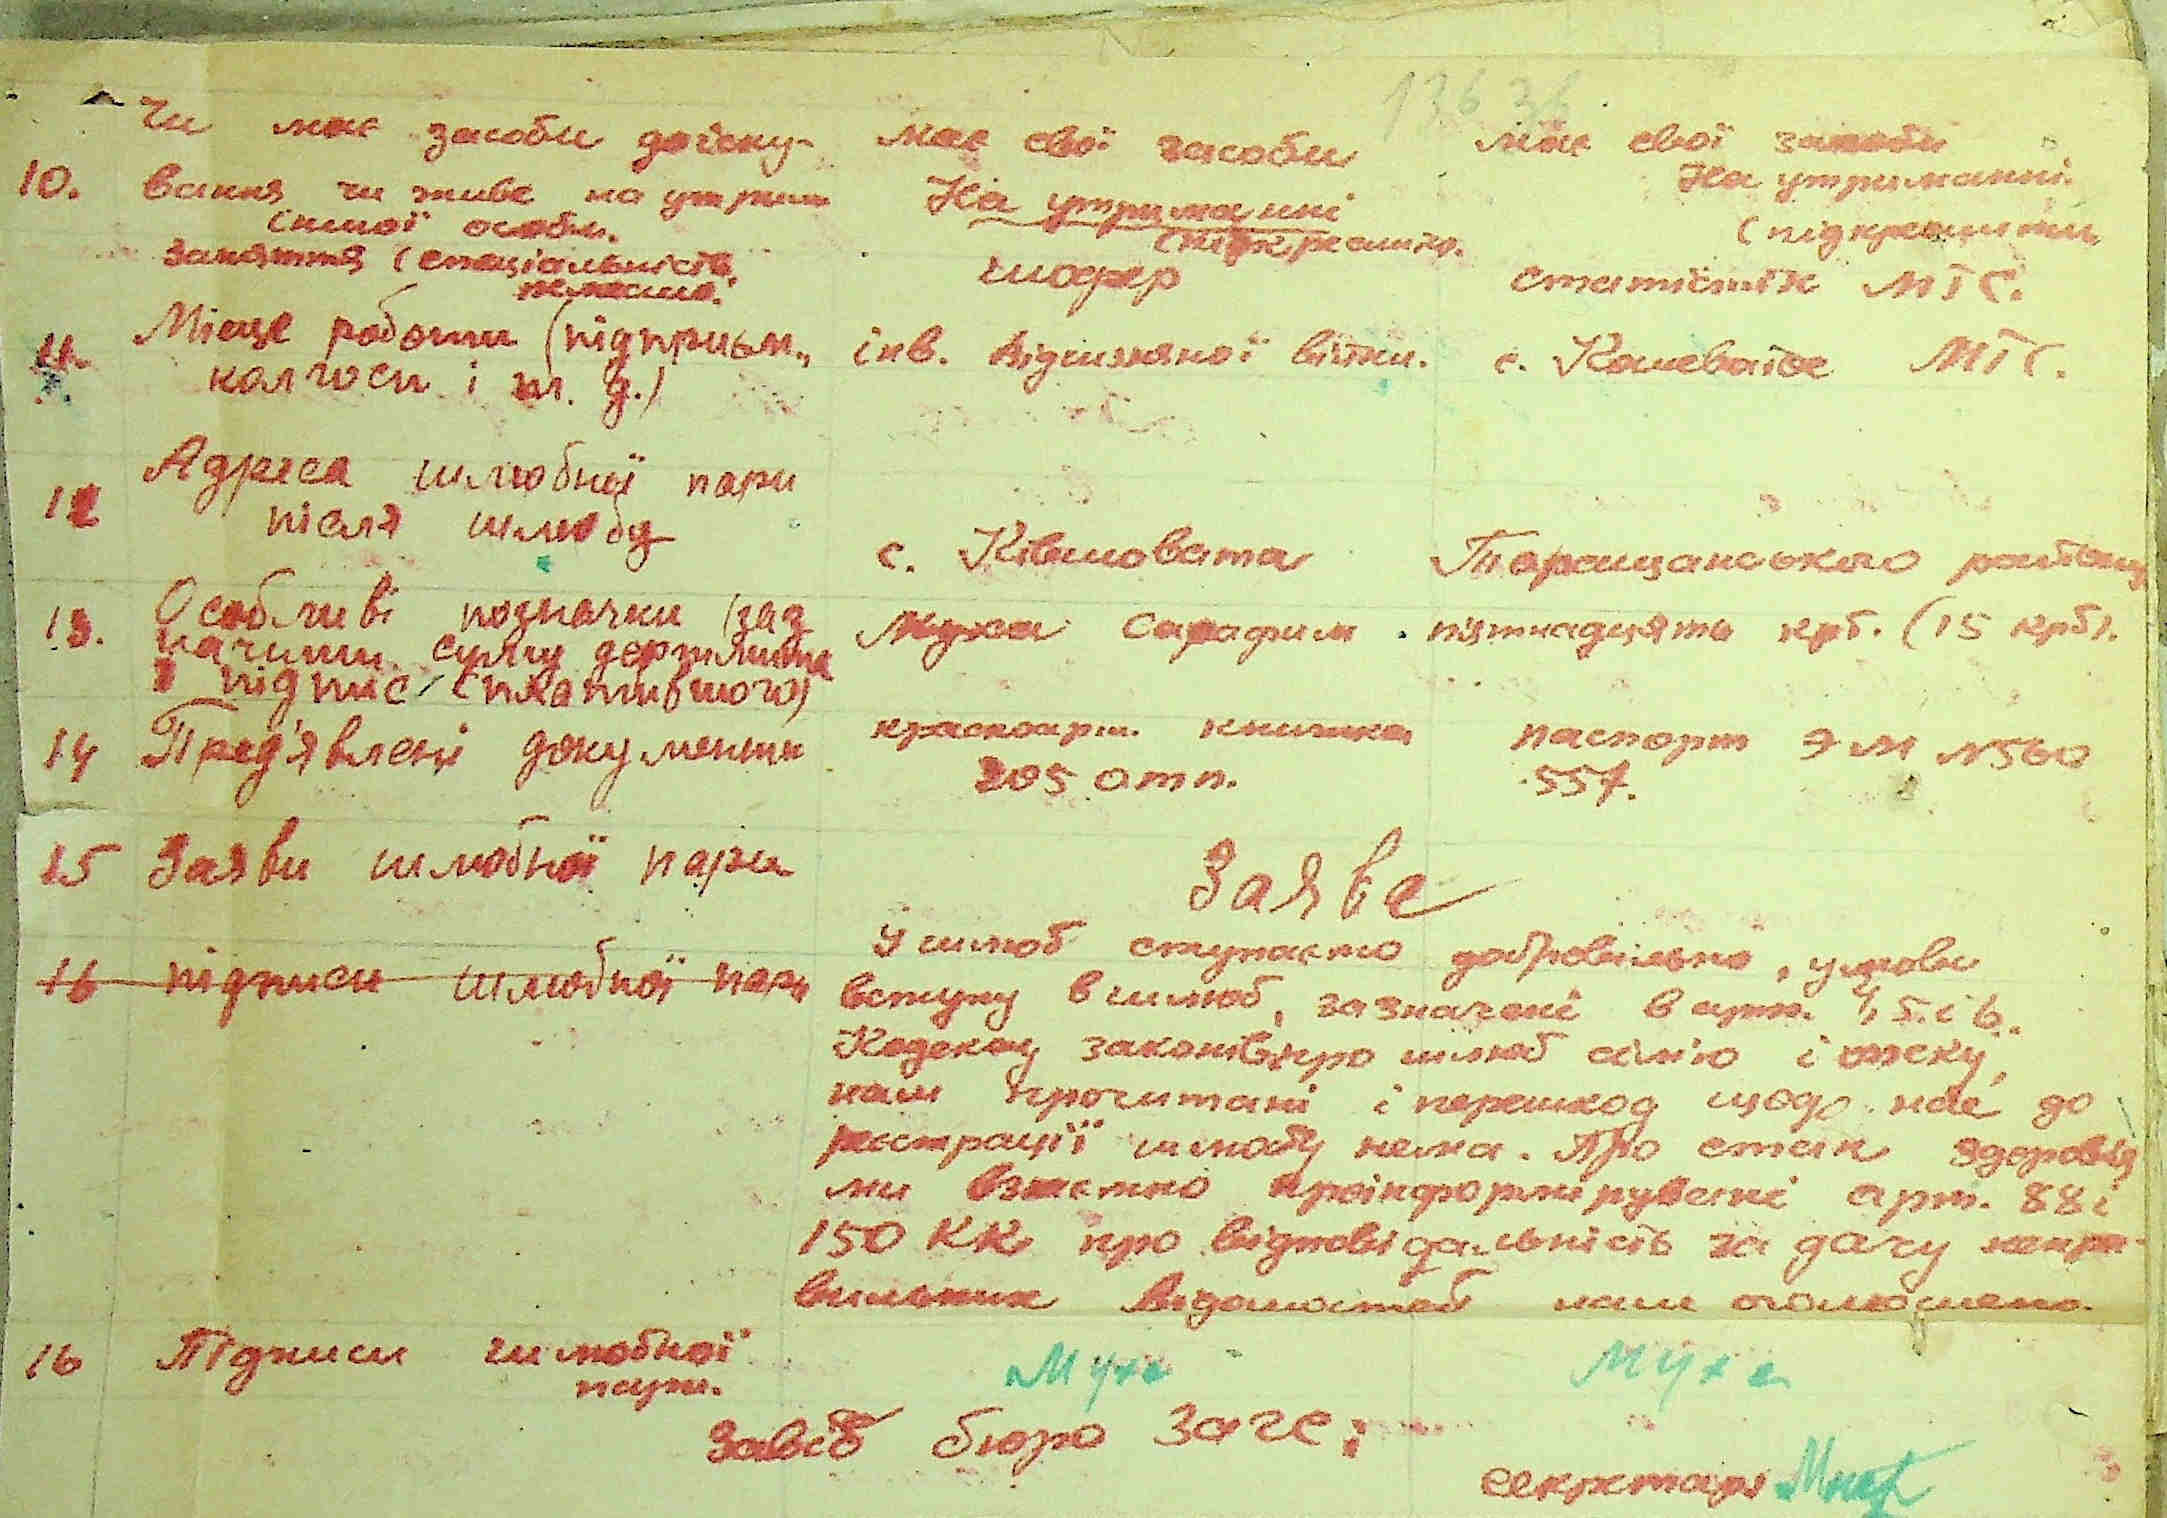 136 36
Чи має засоби до існу- має свої засоби має свої засоби
10. вання чи живе на утрим На утриманні На утриманні.
іншої особи. (підкреслити. (підкреслити
заняття (спеціальність шофер статистік МТС.
11 Місце роботи (підприєм., інв. Вітчизняної війни. с. МТС.
колгосп і т. д.)
12 Адреса шлюбної пари
після шлюбу с. Ківшовата Таращанського району
13. Особливі позначки (заз Муха Серафим п'ятнадцять крб. (15 крб).
начити суму держмита
і підпис сплатившого)
14 Пред'явлені документи красноарм. книжка паспорт ЭМ №560
205 отп. 557.
15 Заяви шлюбної пари Заява
У шлюб ступаємо добровільно, умови
16 підписи шлюбної пари вступу в шлюб, зазначені в арт. 4, 5. і 6.
Кодексу законів про шлюб сім'ю і опеку,
нам прочитані і перешкод щодо нас до
реєстрації шлюбу нема. Про стан здоровія
ми взаємно проінформіруванні арт. 88 і
150 КК про відповідальність за дачу непра-
вильних відомостей нам оголошено.
16 Підписи шлюбної Муха Муха
пари.
Завід бюро Загс:
секретарь